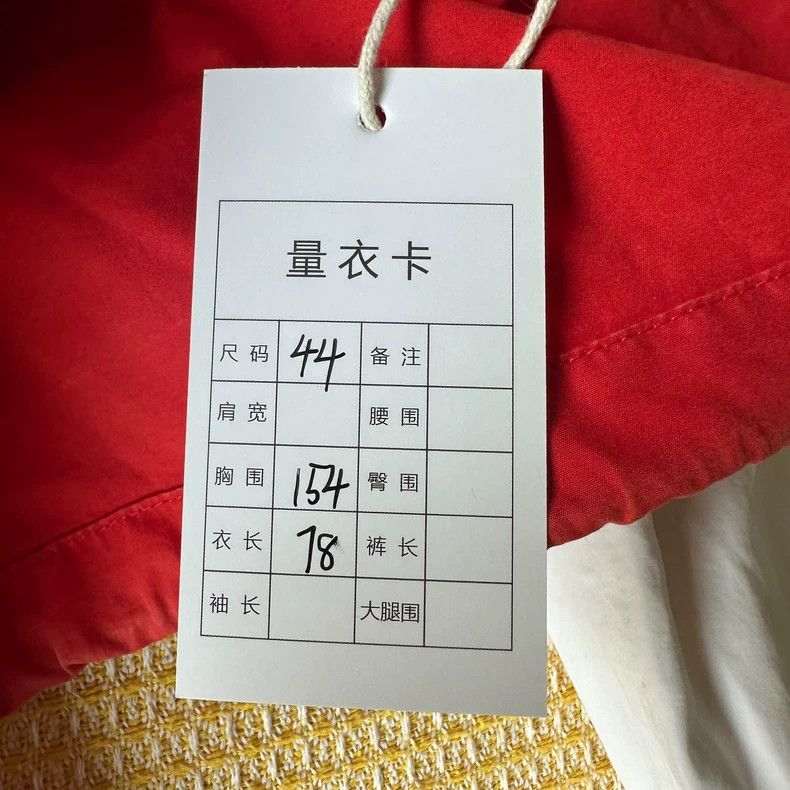 量衣卡
尺码 44 备注
肩宽 腰围
胸围 154 臀围
衣长 78 裤长
袖长 大腿围